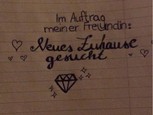 Im Auftrag
meiner Freundin:
Neues Zuhause
gesucht